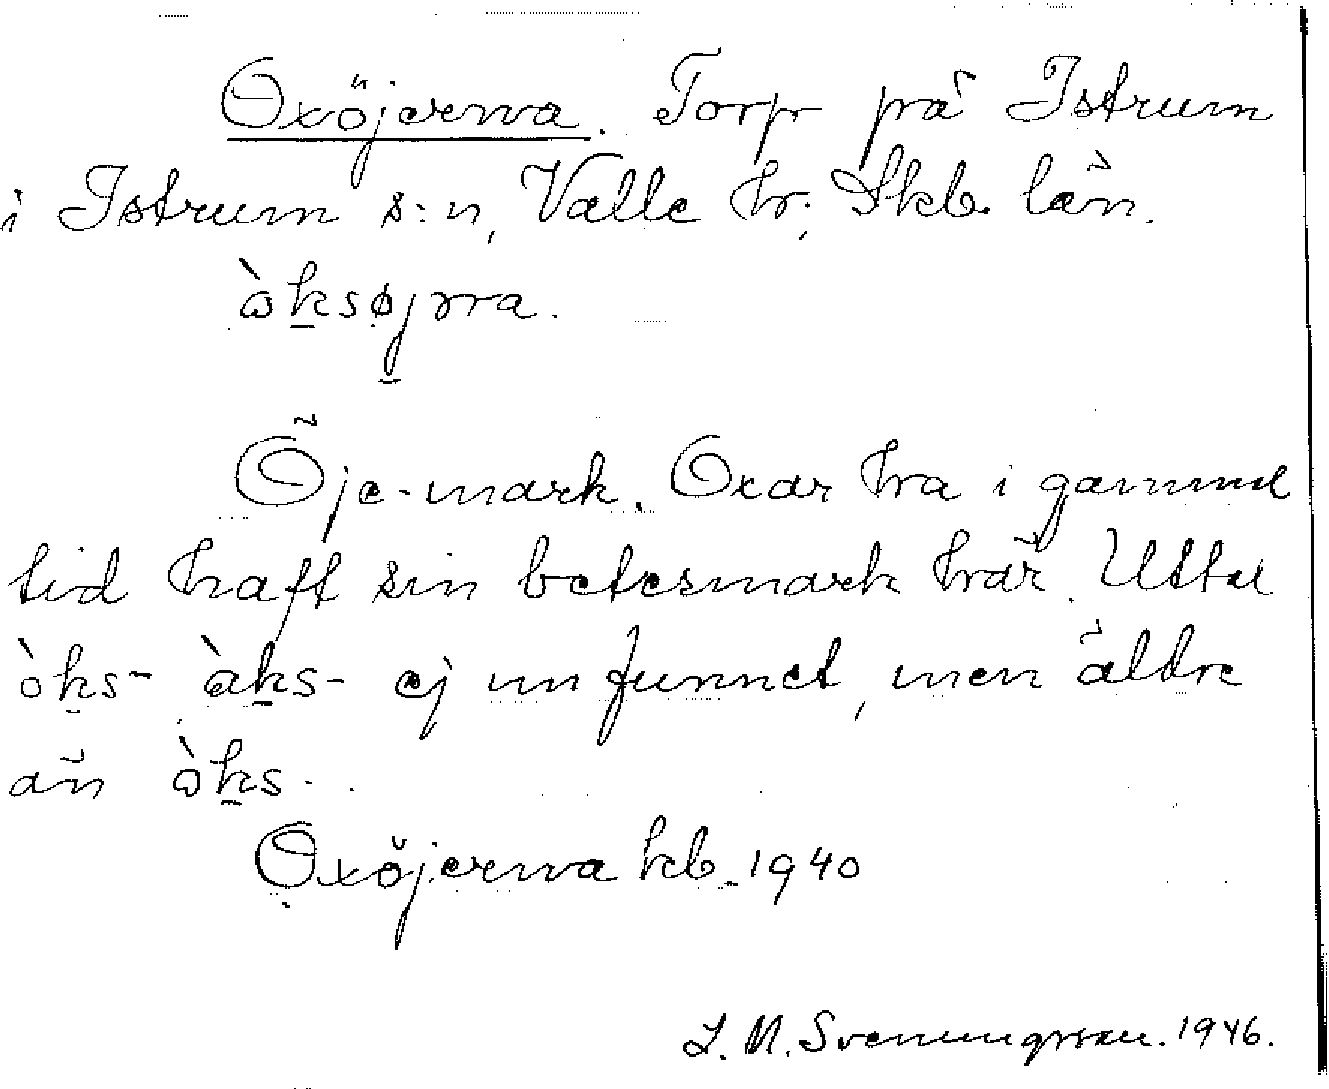 Oxöjerna. Torp på Istrum
i Istrum s:n, Valle hr, Skb. län.
ò̤ksøjrna.
Öje-mark. Oxar ha i gammal
tid haft sin betesmark här. Uttal
òks- àks- ej unfunnet, men äldre
än òks-.
Oxöjerna kb. 1940
L. N. Svenungsson. 1946.